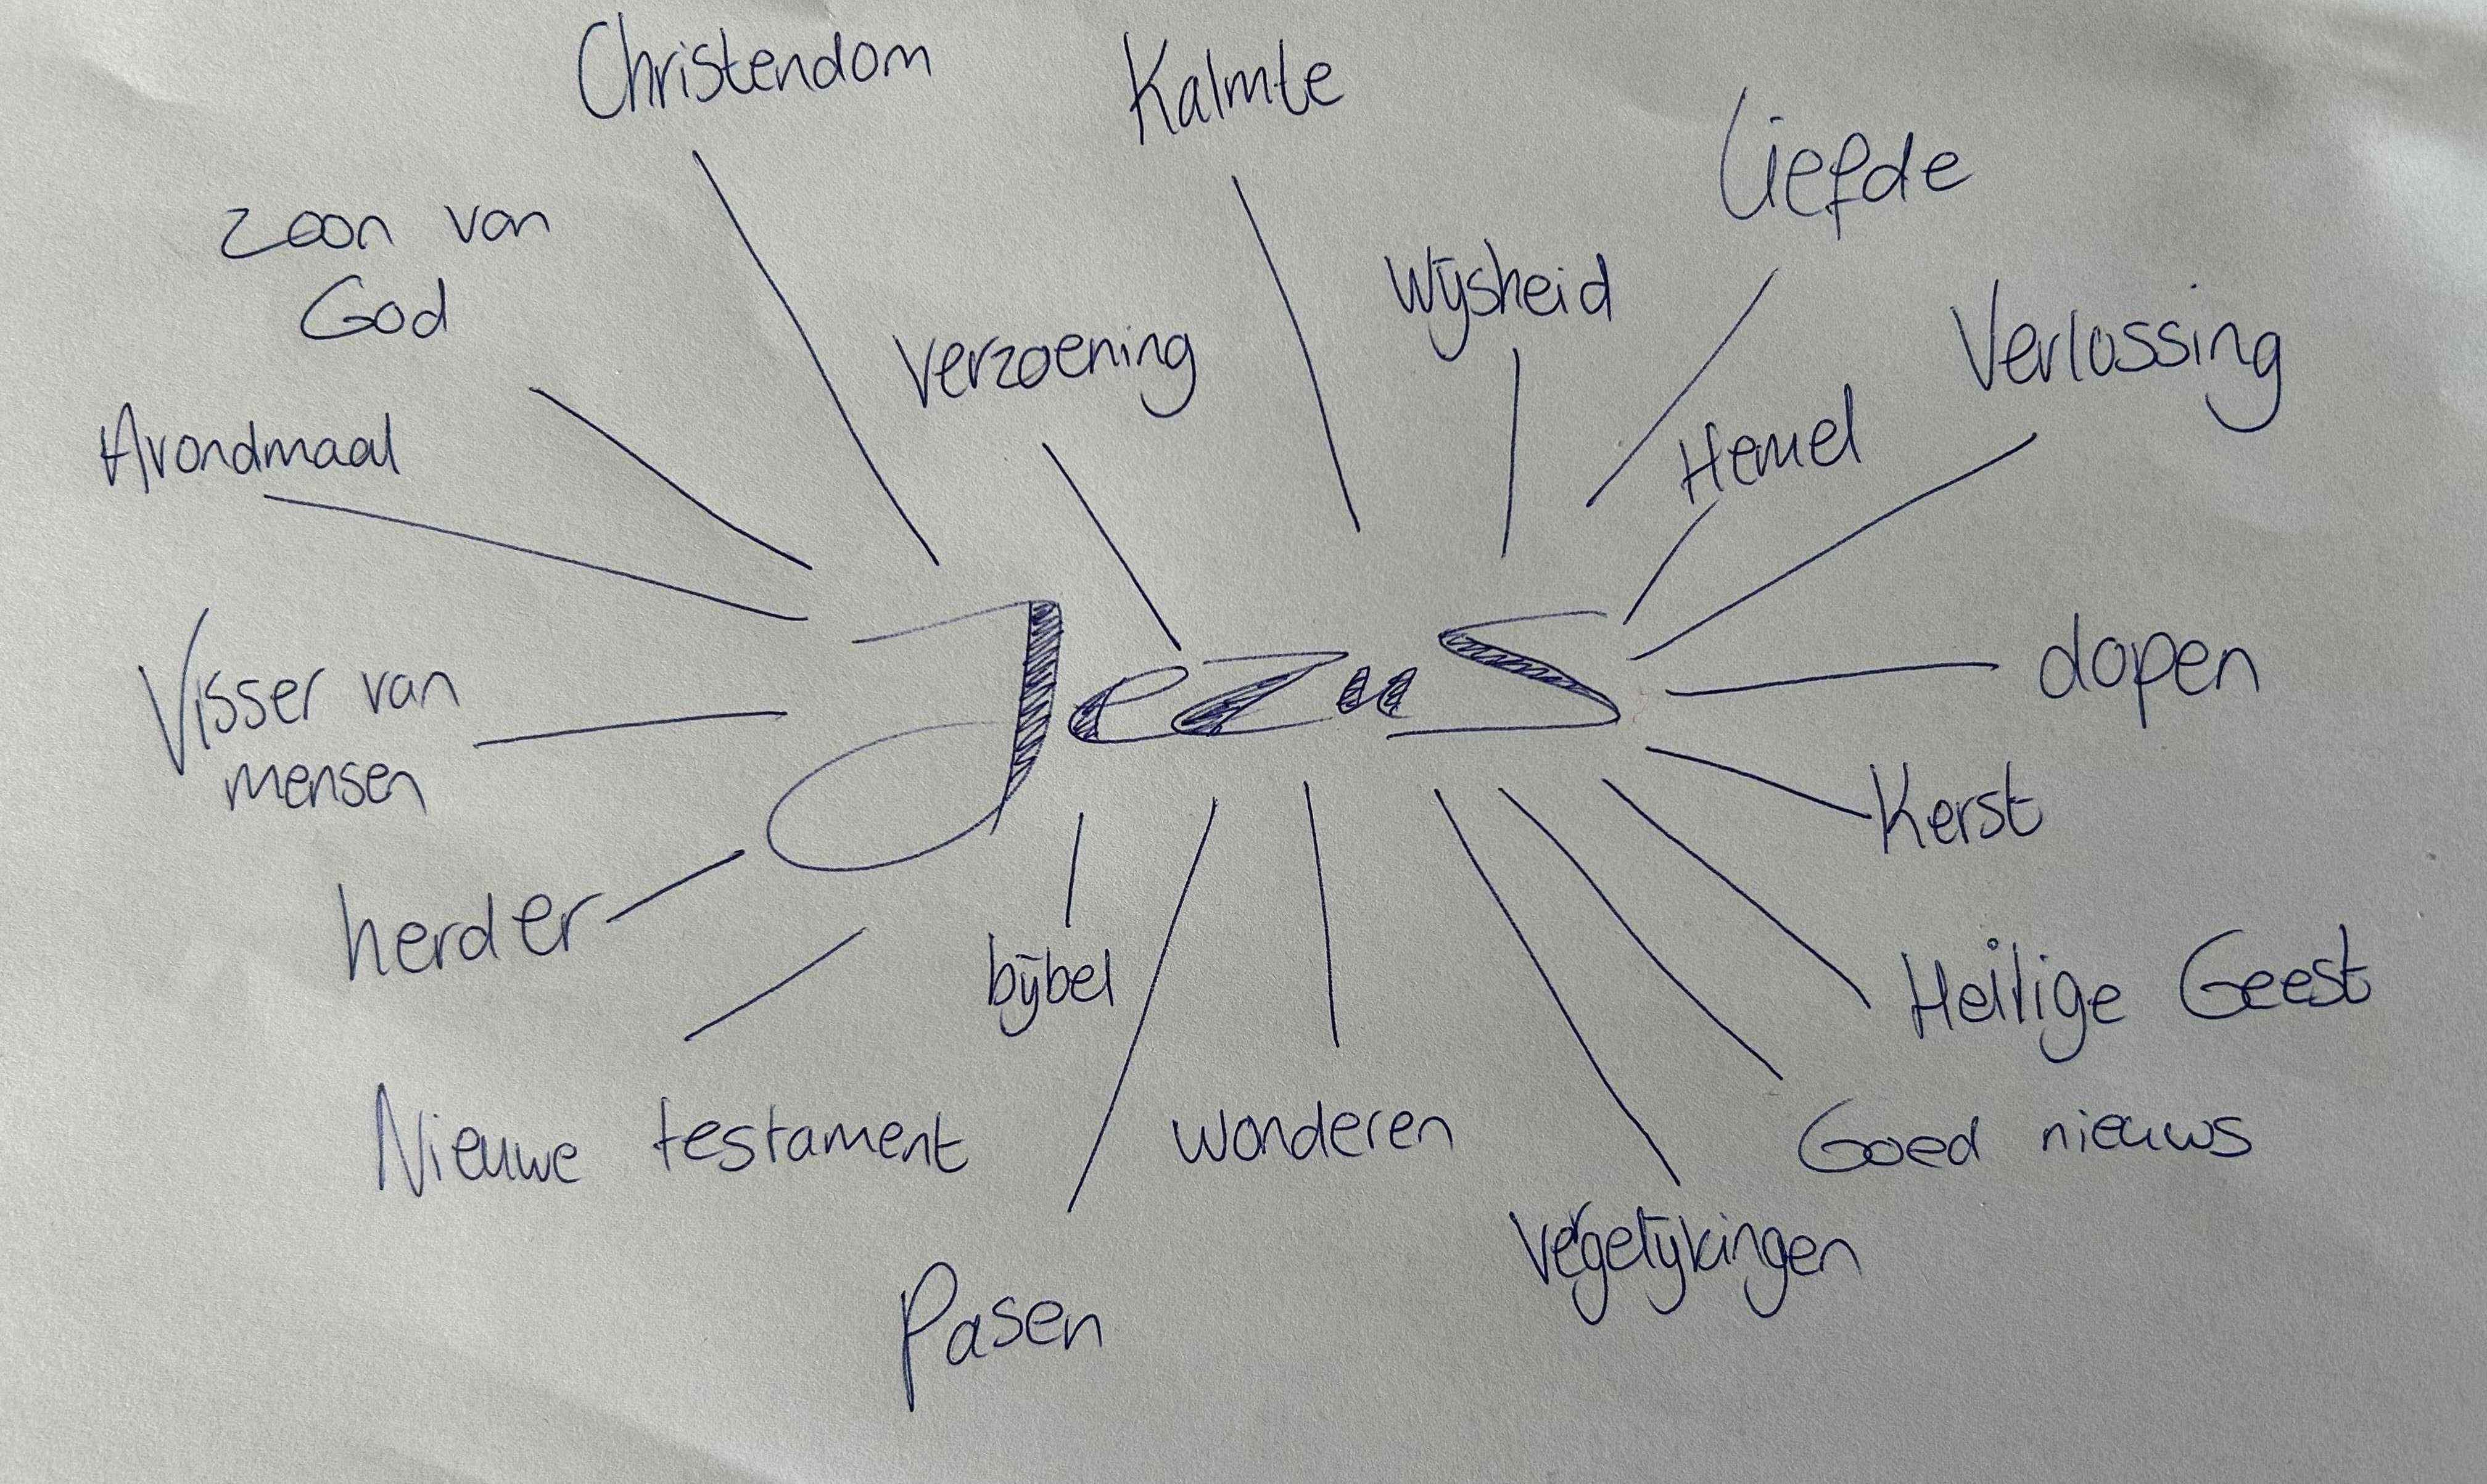 Christendom
Kalmte
Liefde
zoon van
God
Wijsheid
Verzoening
Verlossing
Avondmaal
Hemel
Visser van
mensen
Jezus
dopen
Kerst
herder
bijbel
Heilige Geest
Nieuwe testament
wonderen
Goed nieuws
Vergelijkingen
Pasen